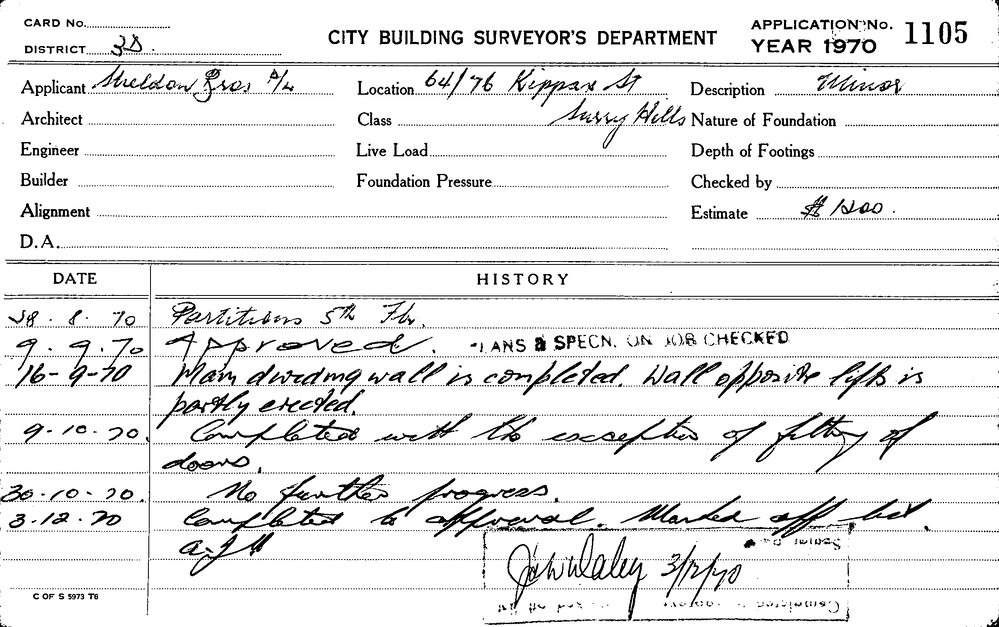 CARD No.
DISTRICT 3D.
CITY BUILDING SURVEYOR'S DEPARTMENT
APPLICATION No. 1105
YEAR 1970
Applicant Sheldon Bros P/L
Location 64/76 Kippax St
Description Minor
Architect
Class Surry Hills
Nature of Foundation
Engineer
Live Load
Depth of Footings
Builder
Foundation Pressure
Checked by
Alignment
Estimate $1200.
D.A.
DATE HISTORY
28. 8. 70 Partitions 5th Flr.
9. 9. 70 Approved. PLANS & SPECN. ON JOB CHECKED
16-9-70 Main dividing wall is completed. Wall opposite lifts is
partly erected.
9.10.70. Completed with the exception of fitting of
doors.
30.10.70. No further progress.
3.12.70 Completed to approval. Marked off list.
John Daley 3/12/70
C OF S 5973 T6